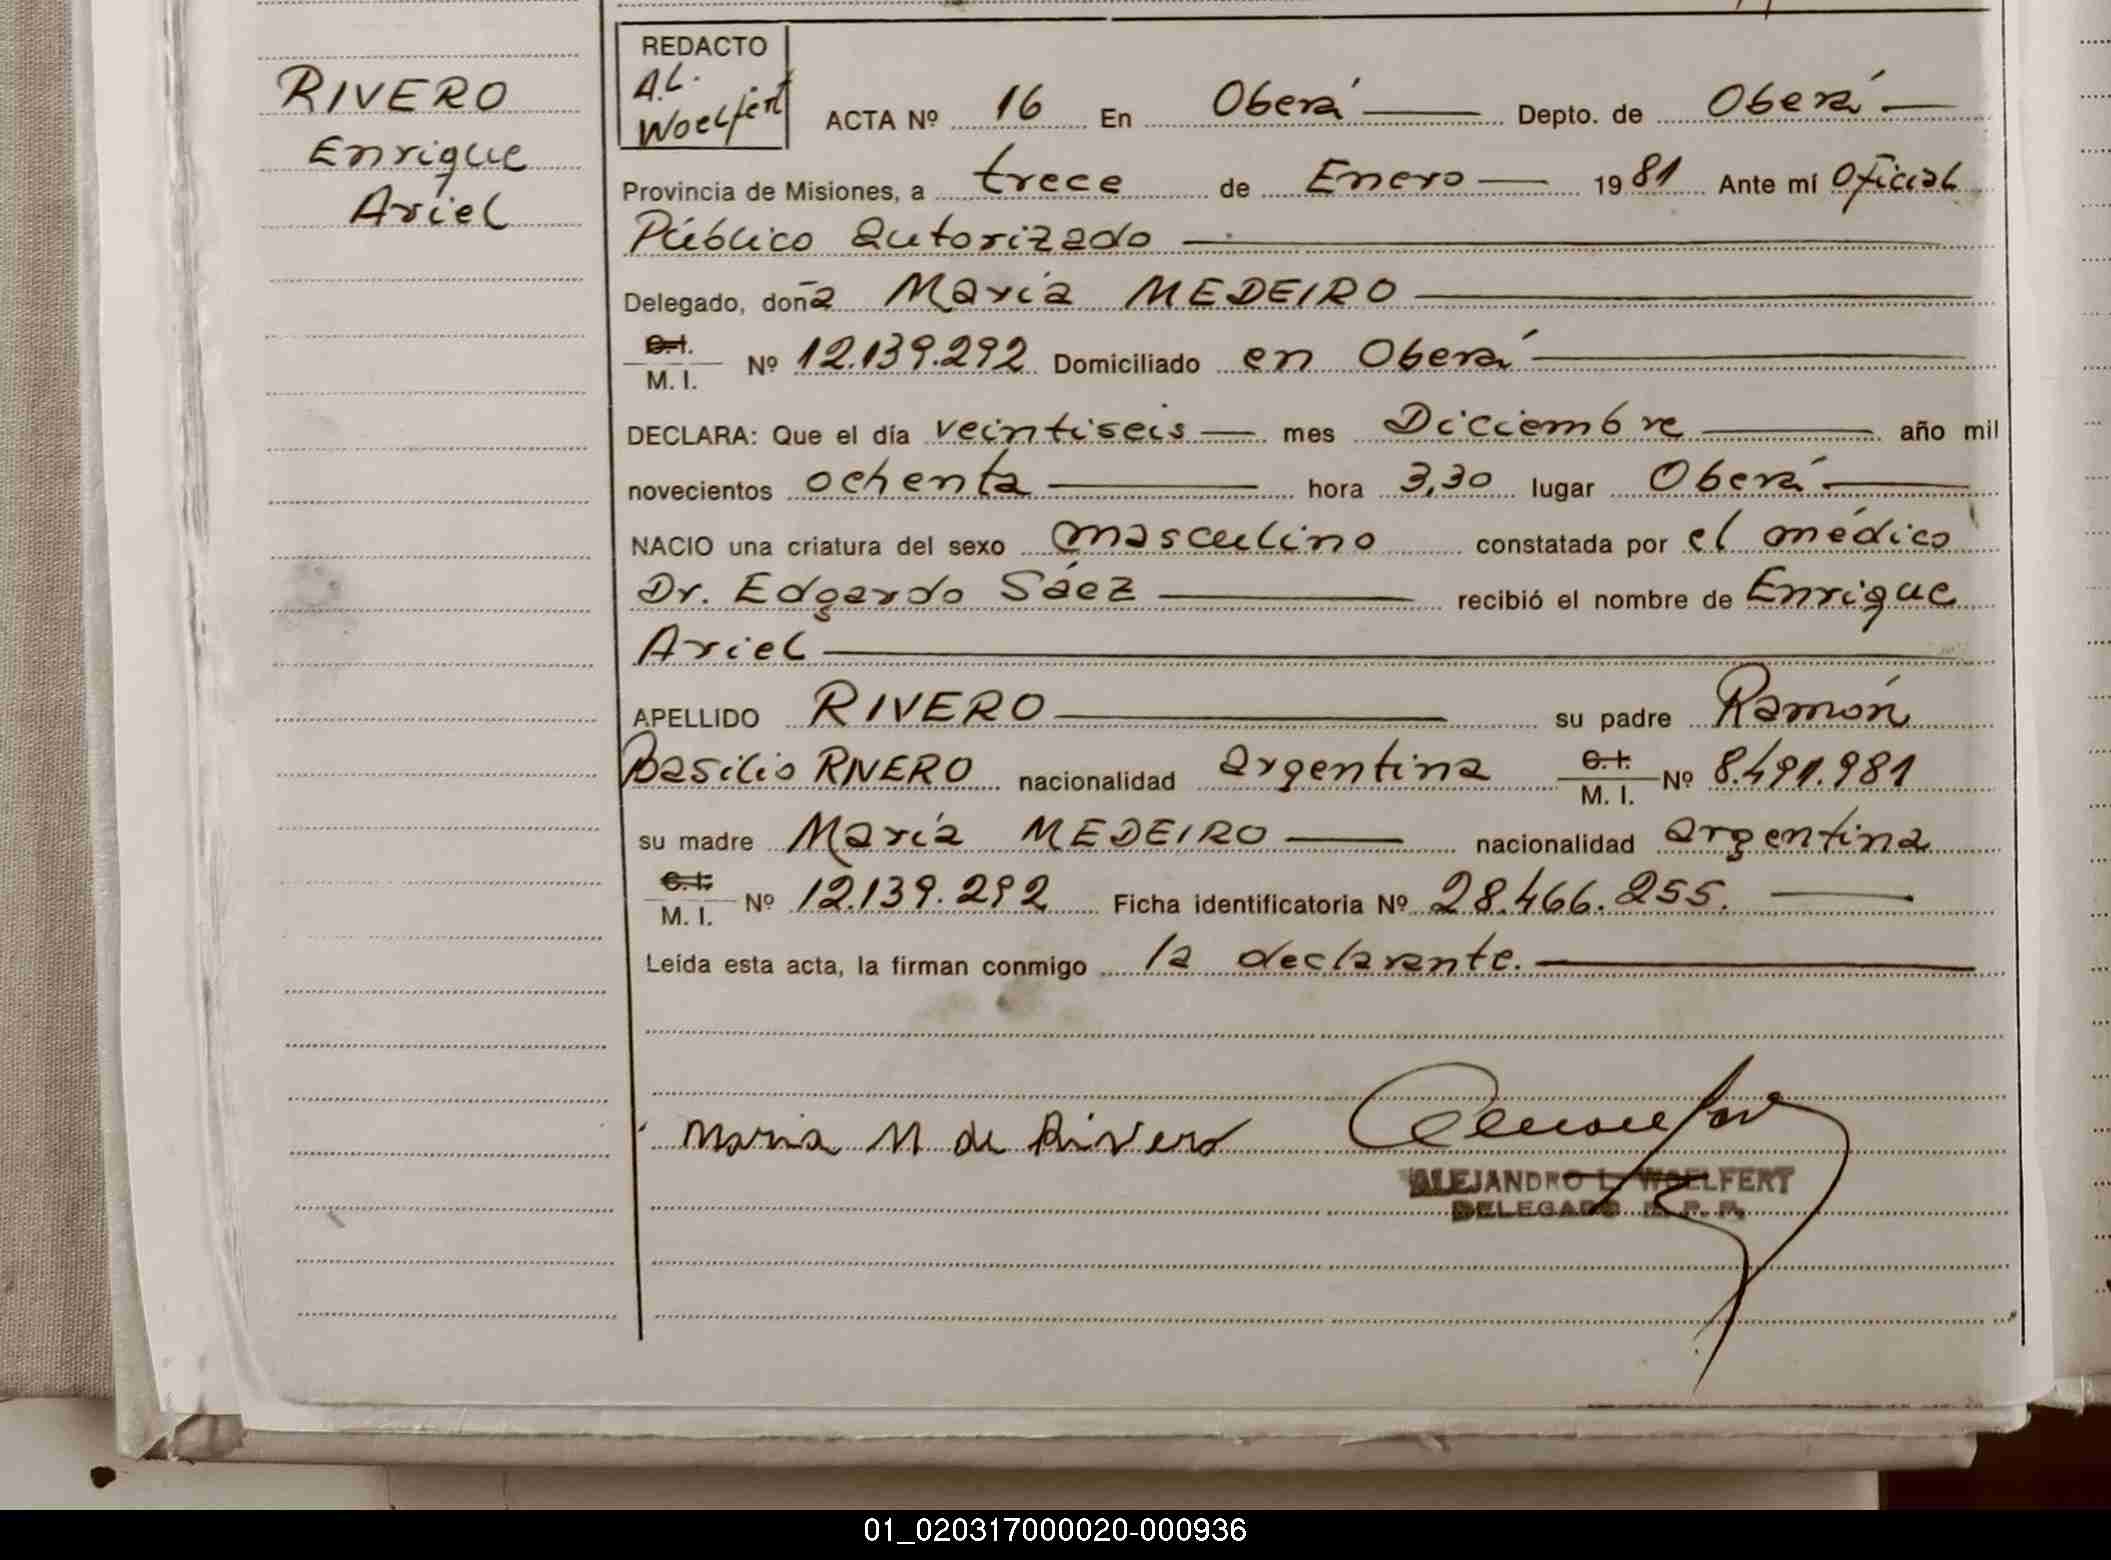 RIVERO
Enrique
Ariel
REDACTO
A.L.
Woelfert
ACTA Nº 16 En Oberá Depto. de Oberá
Provincia de Misiones, a trece de Enero 1981 Ante mí Oficial
Público autorizado
Delegado, doña María MEDEIRO
C.I.
M. I. Nº 12.139.292 Domiciliado en Oberá
DECLARA: Que el día veintiseis mes Diciembre año mil
novecientos ochenta hora 3,30 lugar Oberá
NACIO una criatura del sexo masculino constatada por el médico
Dr. Edgardo Sáez recibió el nombre de Enrique
Ariel
APELLIDO RIVERO su padre Ramón
Basilio RIVERO nacionalidad argentina C. I. M. I. Nº 8.491.981
su madre María MEDEIRO nacionalidad argentina
C. I.
M. I. Nº 12.139.292 Ficha identificatoria Nº 28.466.255.
Leída esta acta, la firman conmigo la declarante.
Maria M de Rivero
ALEJANDRO L. WOELFERT
DELEGADO R. P. P.
01_020317000020-000936